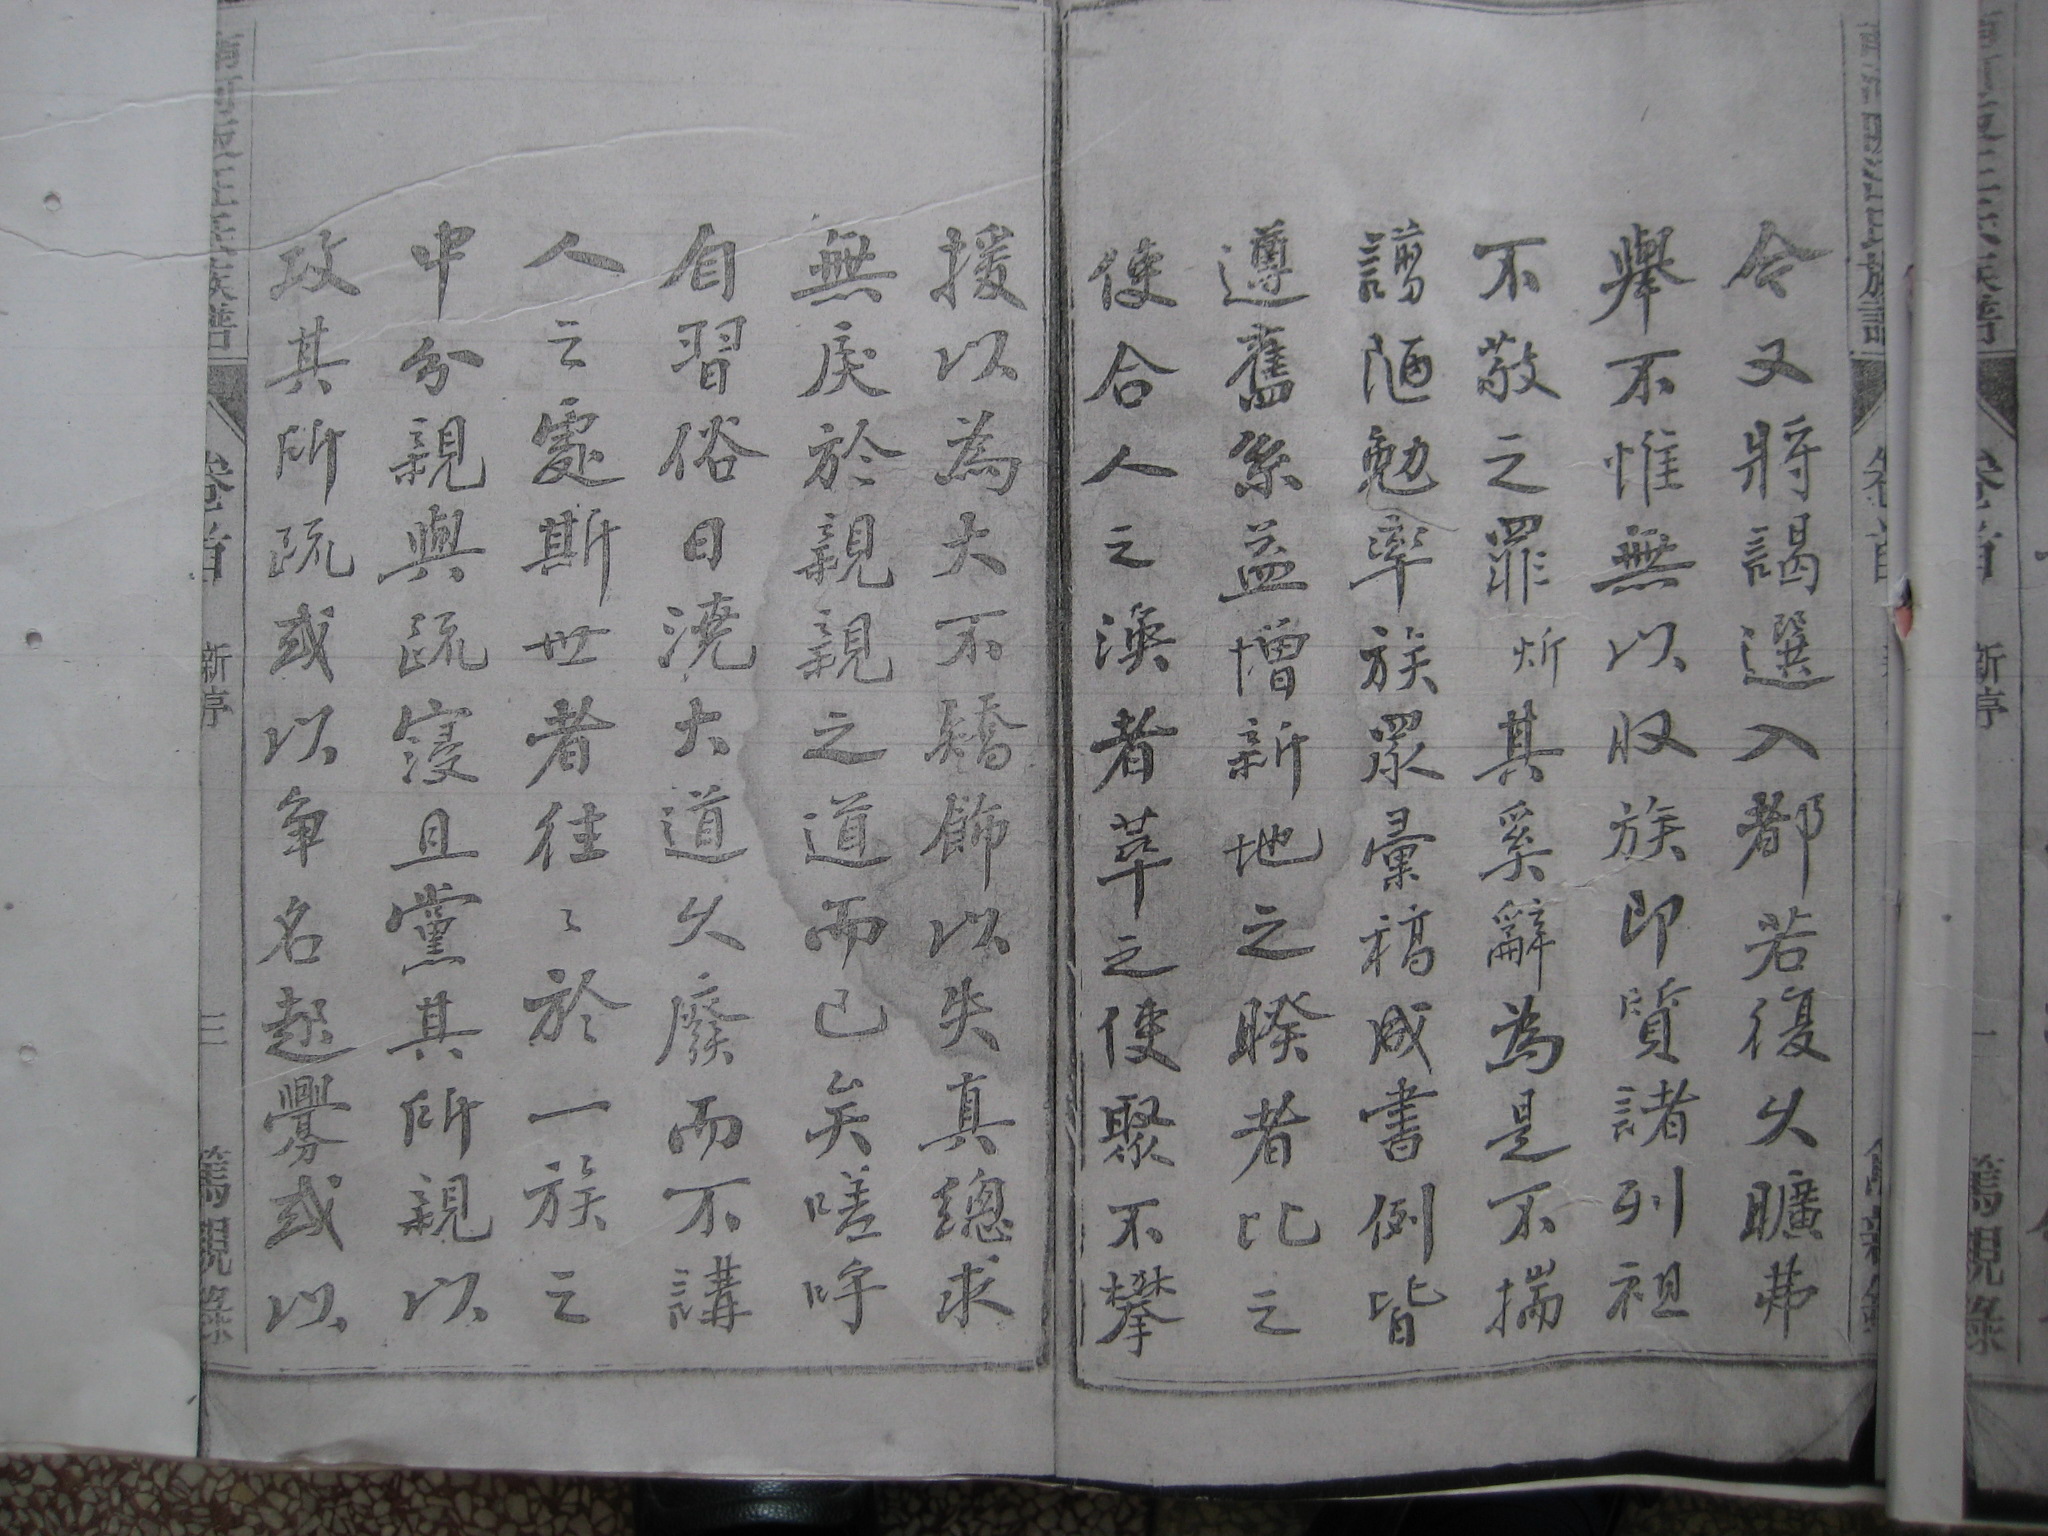 今又將謁選入都若復久曠弗
舉不惟無以收族即質諸列祖
不敬之罪炘其奚辭為是不揣
謭陋勉率族眾彙稿成書例皆
遵舊系益增新地之睽者比之
使合人之渙者萃之使聚不攀
援以為大不矯飾以失真總求
無戾於親親之道而已矣嗟呼
自習俗日澆大道久廢而不講
人之處斯世者往〻於一族之
中分親與疏寖且黨其所親以
攻其所疏或以爭名起釁或以
卷首
新亭
三
篤親錄
新亭
篤親錄